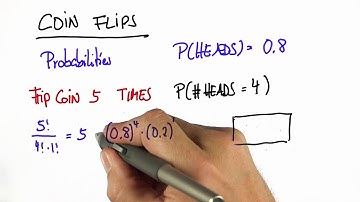 COIN FLIPS
Probabilities P(HEADS) = 0.8
Flip COIN 5 TIMES P(# HEADS = 4)
5! / 4!·1! = 5 (0.8)^4 · (0.2)^1